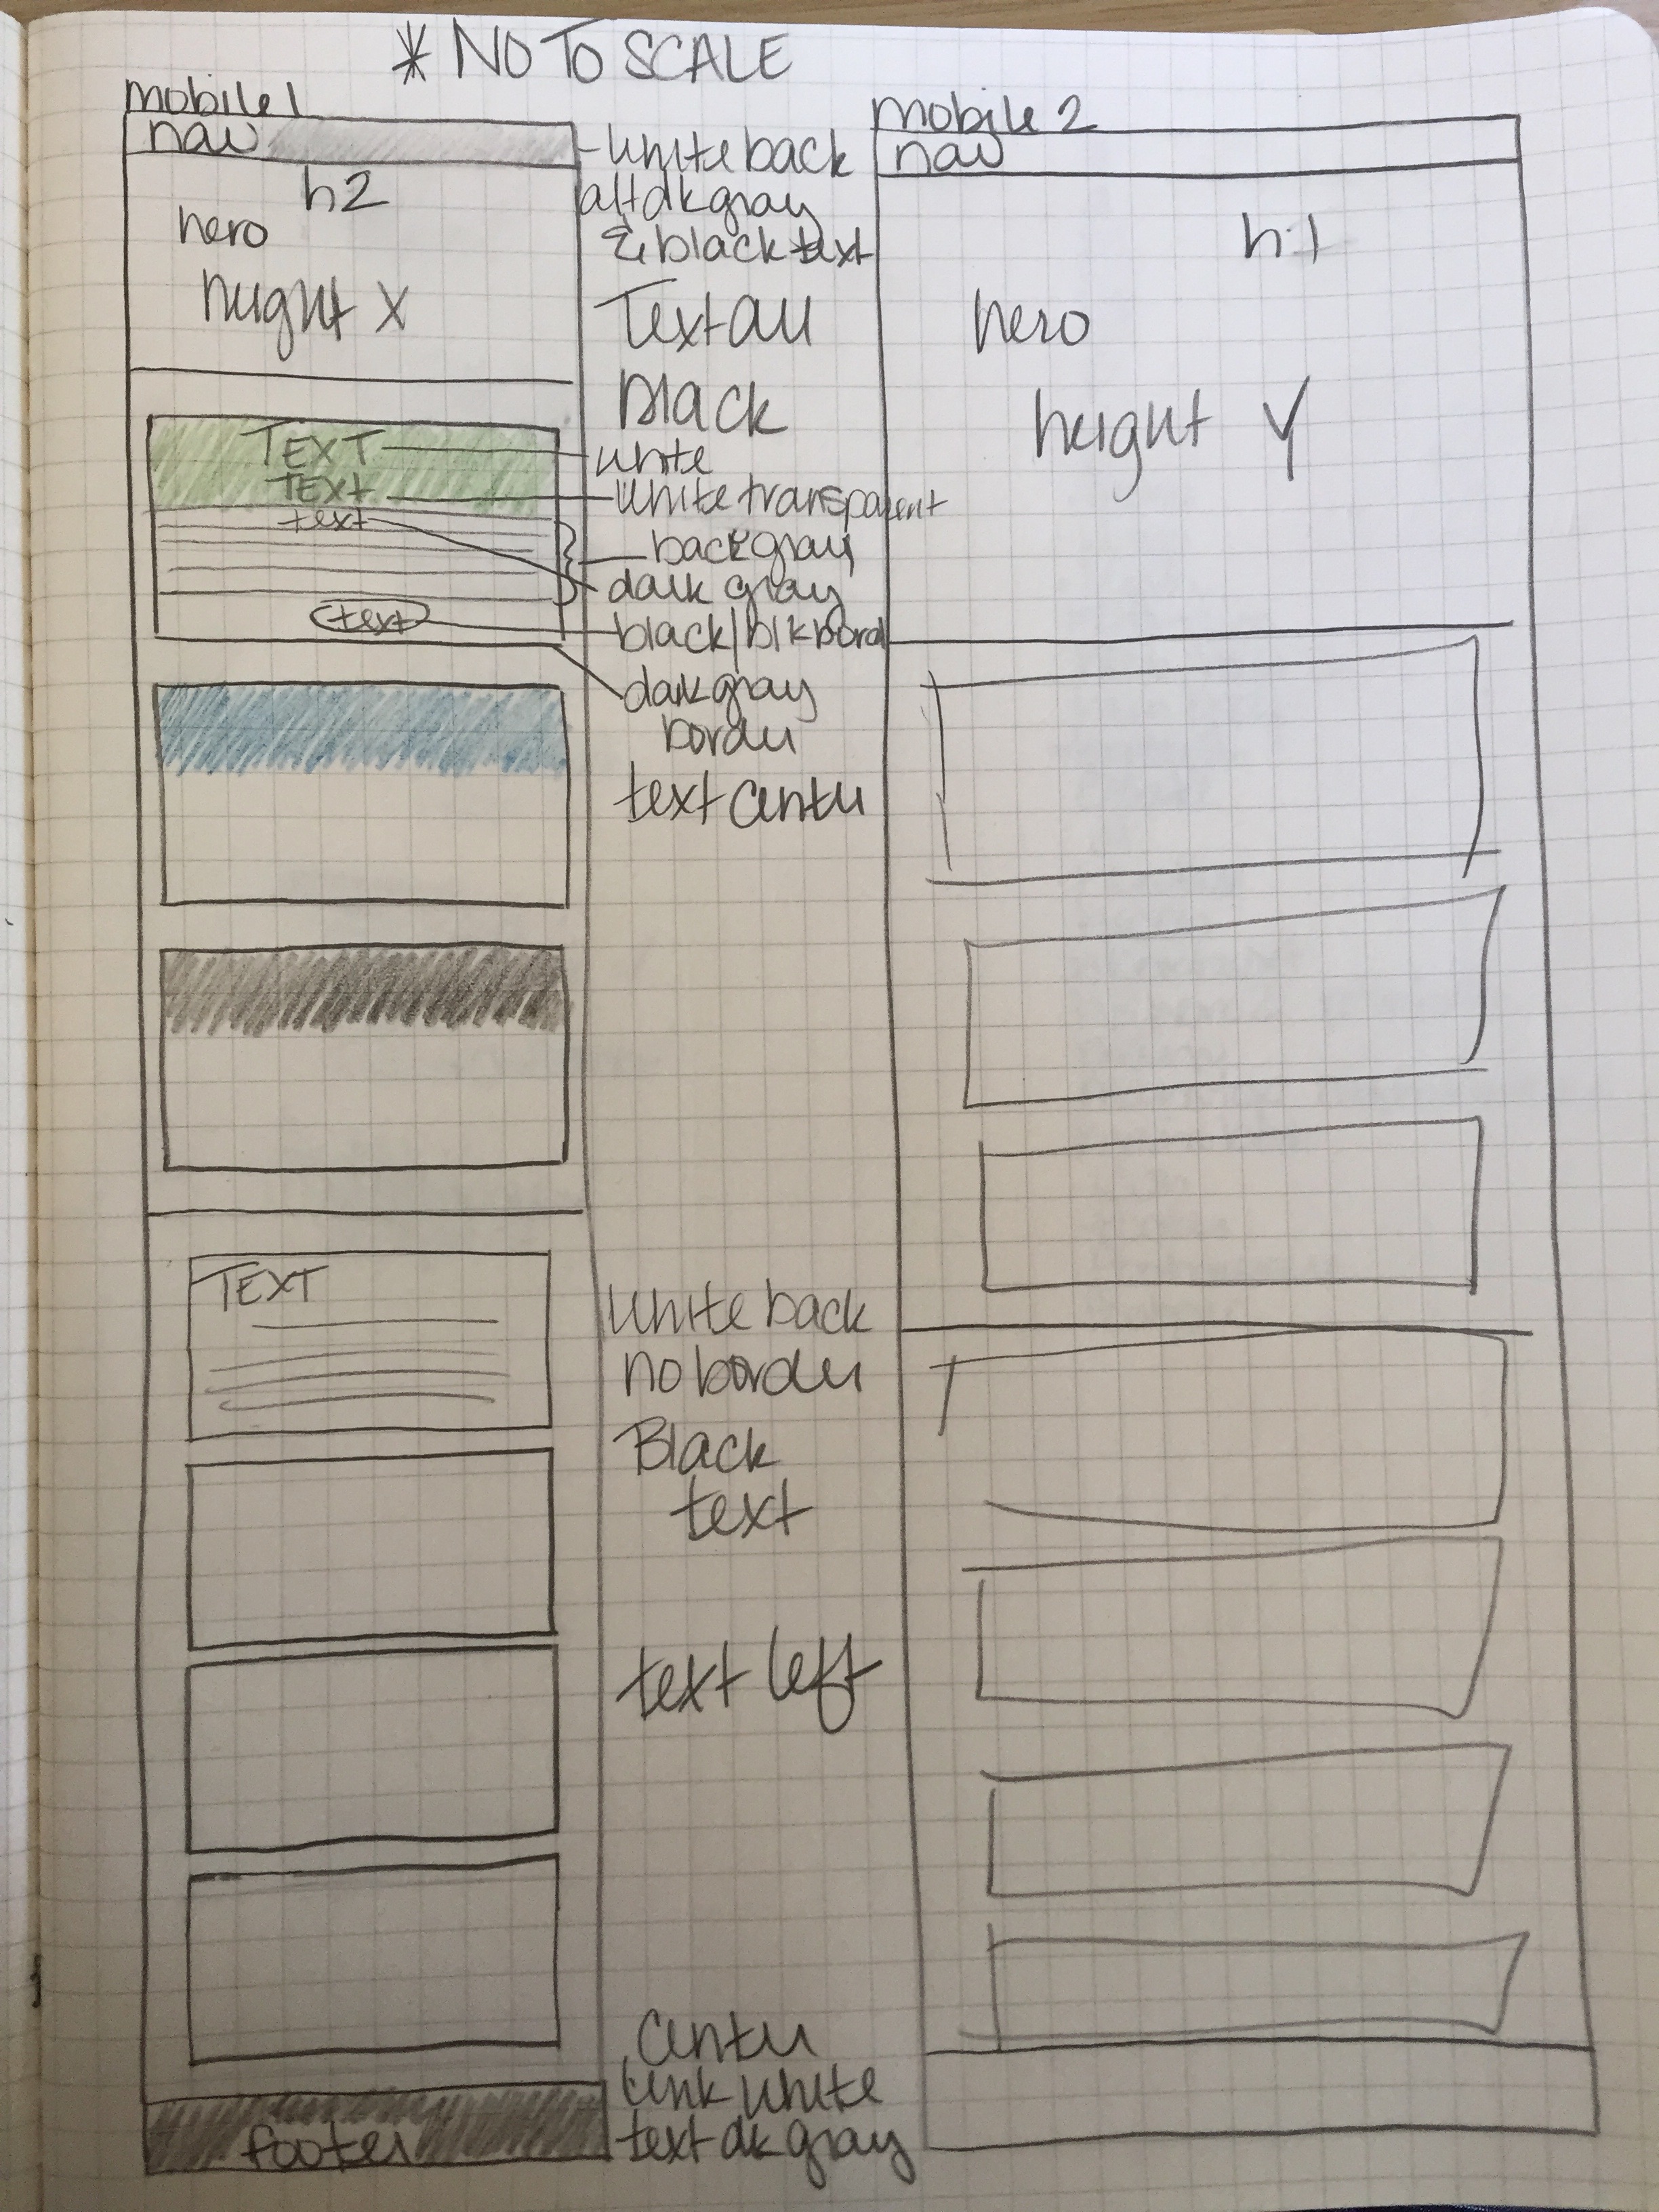 * NO TO SCALE
mobile 1
nav
h2
hero
height X
TEXT
TEXT
text
text
TEXT
footer
white back
alt dk gray
& black text
Text all
black
white
white transparent
back gray
dark gray
black/blk bord
dark gray
border
text center
white back
no border
Black
text
text left
center
link white
text dk gray
mobile 2
nav
h1
hero
height Y